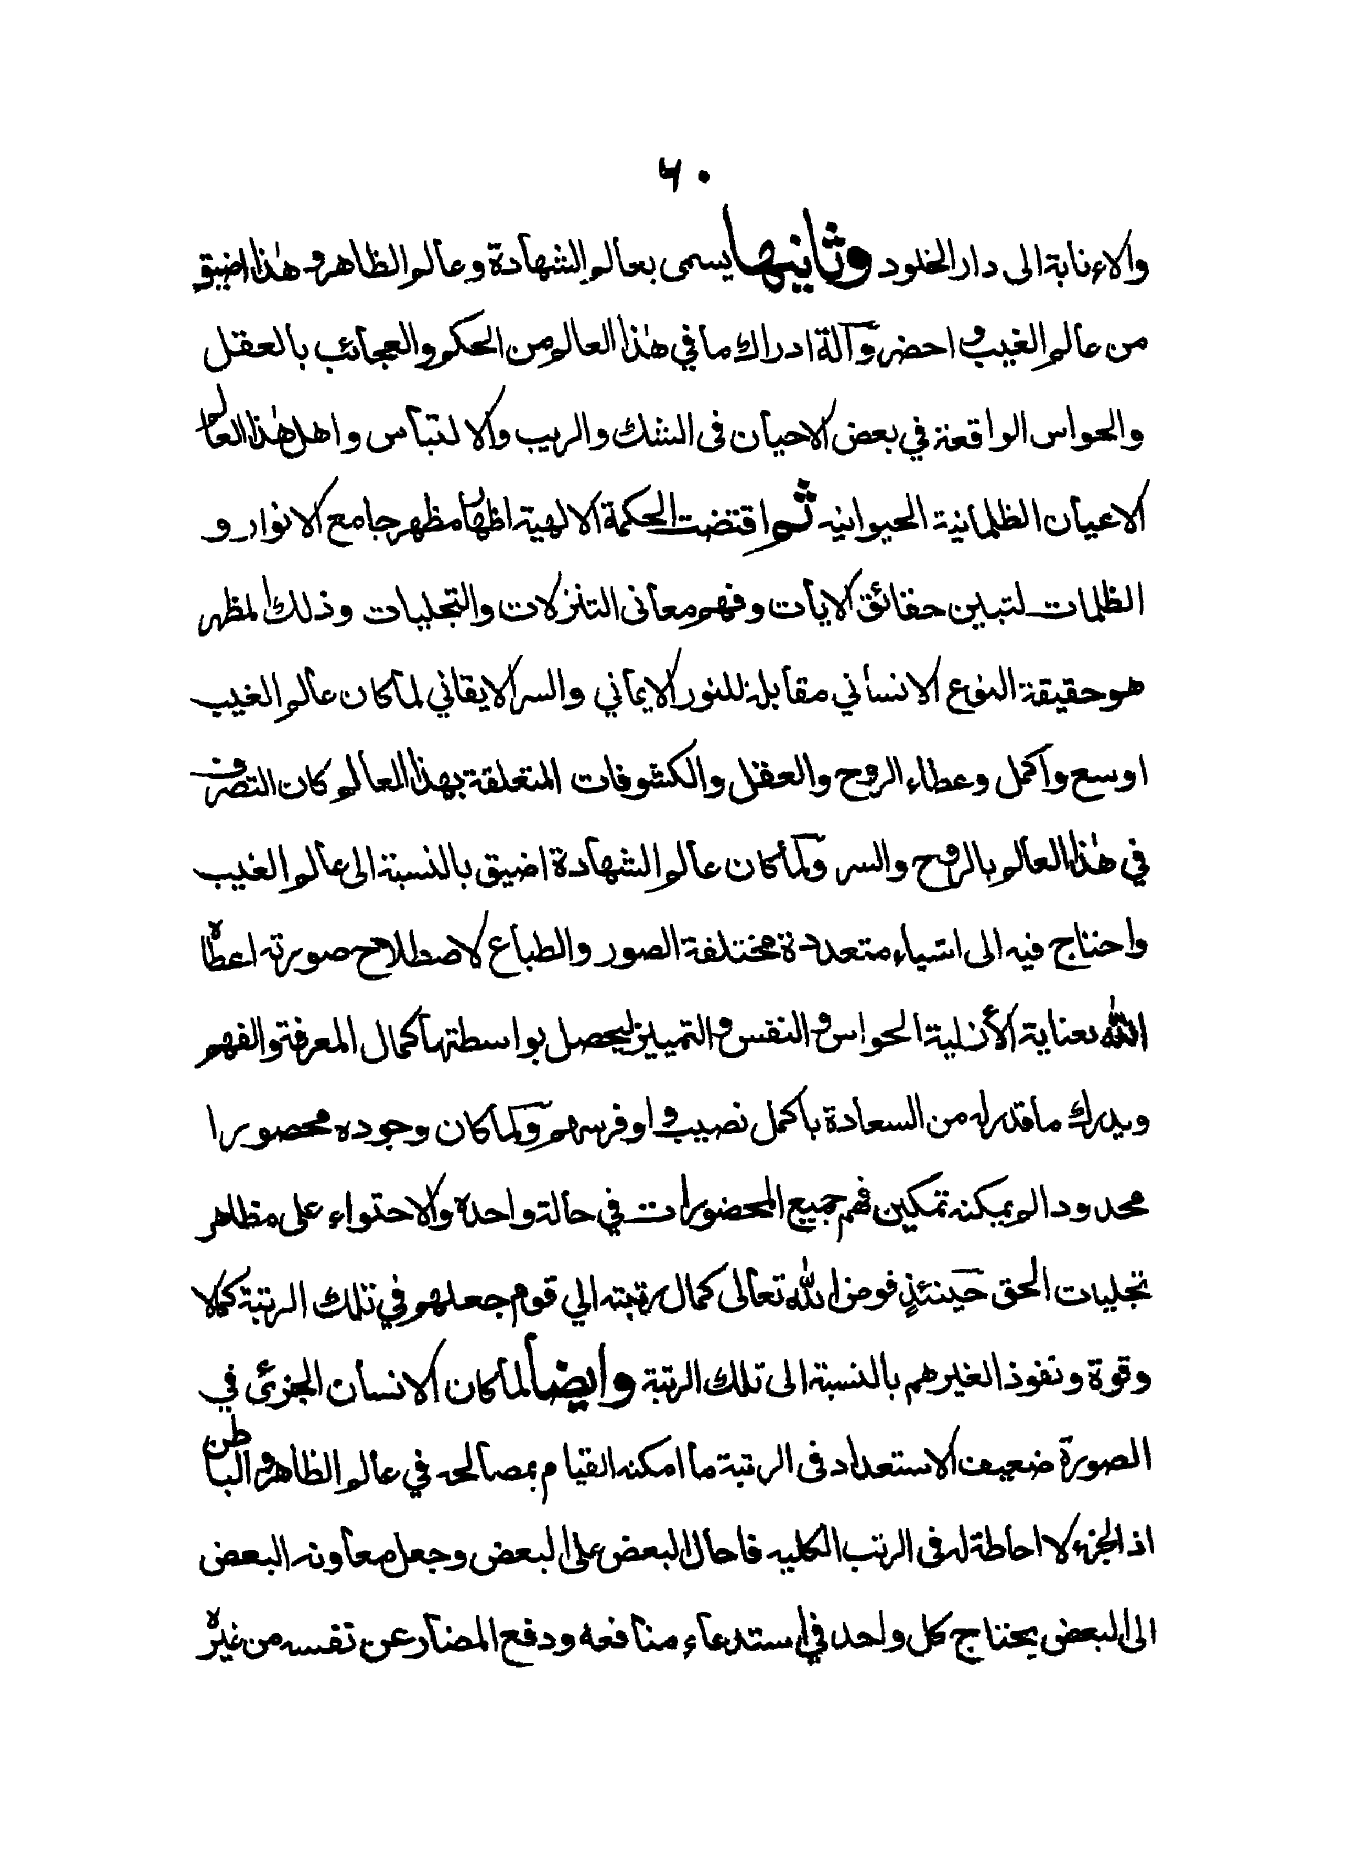 ٦٠
والاءنابة الى دار الخلود وثانيها يسمى بعالم الشهادة وعالم الظاهر وهذا اضيق
من عالم الغيب و احضر وآلة ادراك ما في هذا العالم من الحكم والعجائب بالعقل
والحواس الواقعة في بعض الاحيان فى الشك والريب والالتباس واهل هذا العالم
الاعيان الظلمانية الحيوانيه ثم اقتضت الحكمة الالهية اظهار مظهر جامع الانوار و
الظلمات لتبين حقائق الايات وفهم معانى التنزلات والتجليات وذلك المظهر
هو حقيقة النوع الانساني مقابلة للنور الايماني والسر الايقاني لما كان عالم الغيب
اوسع واكمل وعطاء الروح والعقل والكشوفات المتعلقة بهذا العالم كان التصرف
في هذا العالم بالروح والسر ولما كان عالم الشهادة اضيق بالنسبة الى عالم الغيب
واحتاج فيه الى اشياء متعددة مختلفة الصور والطباع لاصطلاح صورته اعطاه
الله بعناية الأزلية الحواس و النفس و التمييز ليحصل بواسطتها كمال المعرفة والفهم
ويدرك ما قدر له من السعادة باكمل نصيب و اوفر سهم ولما كان وجوده محصورا
محدودا لم يمكنه تمكين فهم جميع المحضورات في حالة واحدة والاحتواء على مظاهر
تجليات الحق حينئذٍ فوض الله تعالى كمال مرتبته الي قوم جعلهم في تلك الرتبة كملا
وقوة ونفوذ الغيرهم بالنسبة الى تلك الرتبة وايضا لما كان الانسان الجزئى في
الصورة ضعيف الاستعداد فى الرتبة ما امكنه القيام بمصالحه في عالم الظاهر و الباطن
اذ الجزء لا احاطة له فى الرتب الكليه فاحال البعض على البعض وجعل معاونه البعض
الى البعض يحتاج كل واحد في استدعاء منافعه ودفع المضار عن نفسه من غيره